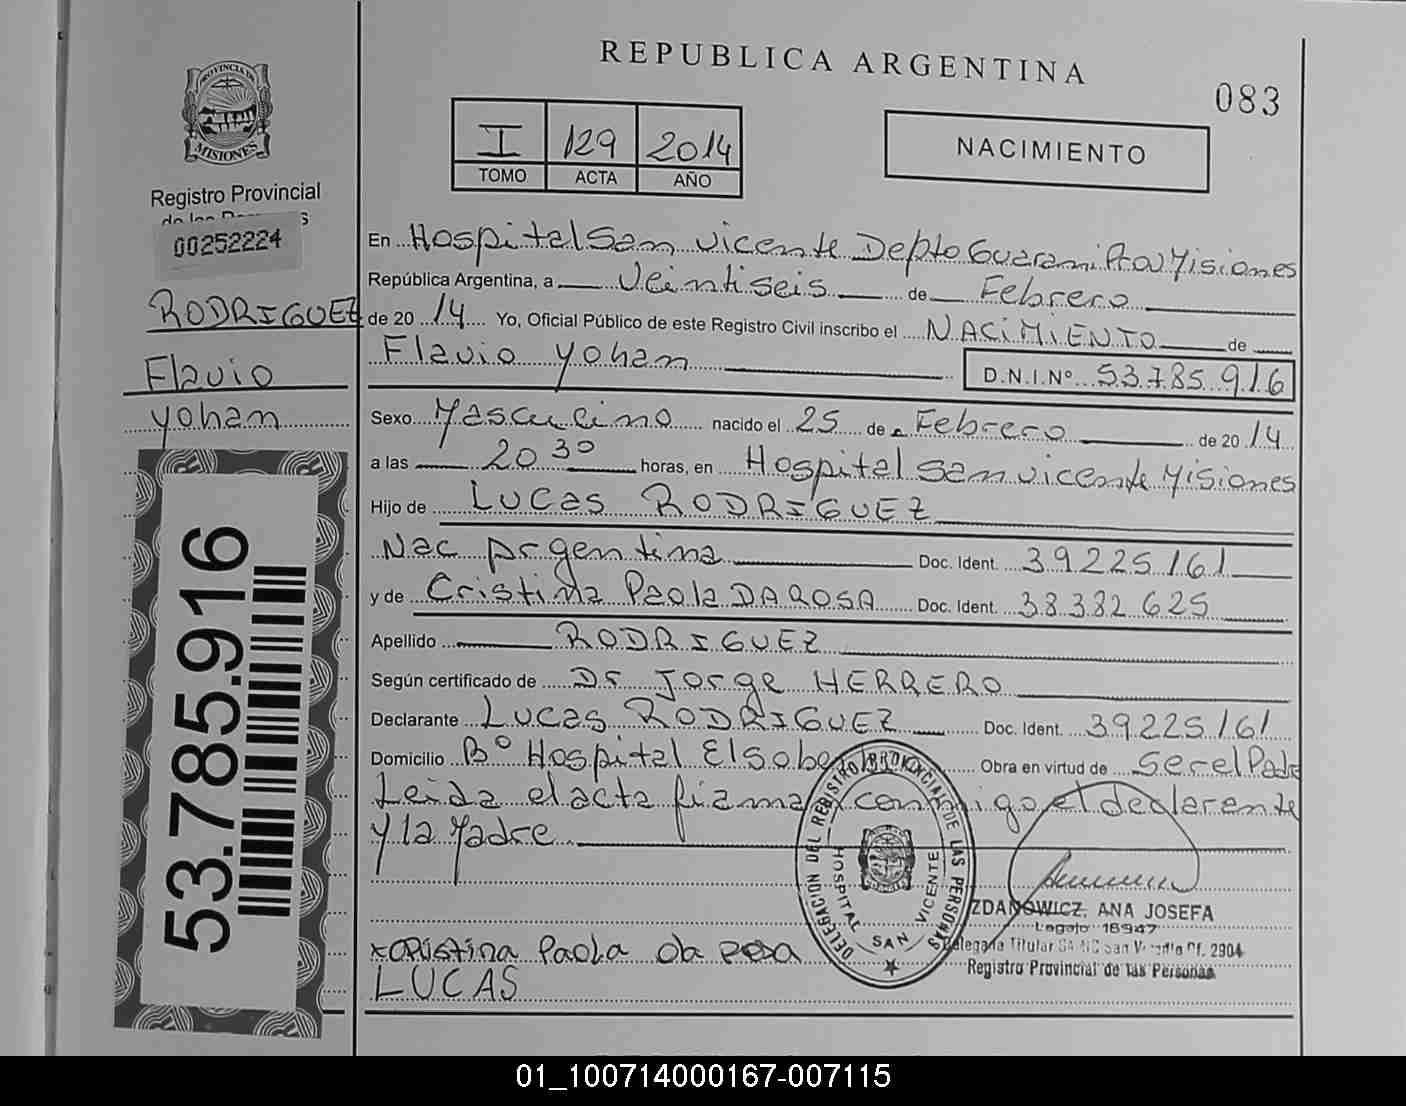 REPUBLICA ARGENTINA
083
PROVINCIA DE
MISIONES
Registro Provincial
00252224
RODRIGUEZ
Flavio
Yohan
53.785.916
I 129 2014
TOMO ACTA AÑO
NACIMIENTO
En Hospital San Vicente Depto Guarani Prov Misiones
República Argentina, a Veintiseis de Febrero
de 2014 Yo, Oficial Público de este Registro Civil inscribo el NACIMIENTO de
Flavio Yohan D.N.I.Nº 53.785.916
Sexo Masculino nacido el 25 de Febrero de 2014
a las 20 30 horas, en Hospital San Vicente Misiones
Hijo de LUCAS RODRIGUEZ
Nac Argentina Doc. Ident. 39225161
y de Cristina Paola DAROSA Doc. Ident. 38382625
Apellido RODRIGUEZ
Según certificado de Dr Jorge HERRERO
Declarante LUCAS RODRIGUEZ Doc. Ident. 39225161
Domicilio Bº Hospital El Obra en virtud de Ser el Padre
Leida el acta firma conmigo el declarante
y la Madre
DELEGACION DEL REGISTRO PROVINCIAL DE LAS PERSONAS
HOSPITAL SAN VICENTE
ZDANOWICZ, ANA JOSEFA
Legajo 16947
Delegada Titular San Vicente Of. 2904
Registro Provincial de las Personas
x CRistina Paola da Rosa
LUCAS
01_100714000167-007115